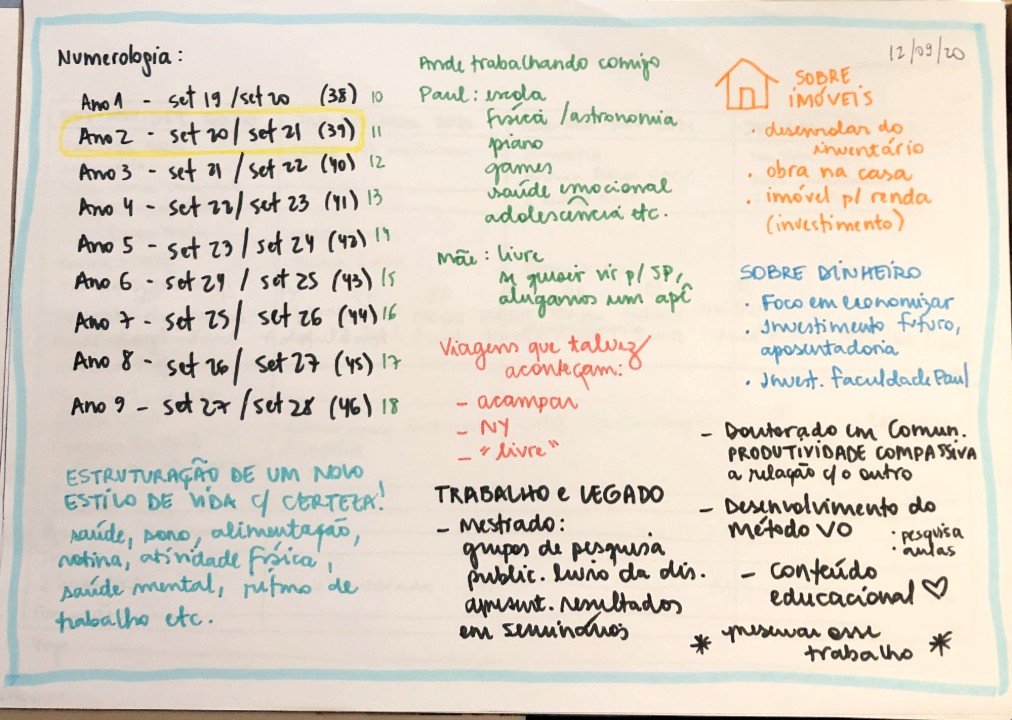 12/09/20
Numerologia:
Ano 1 - set 19 / set 20 (38) 10
Ano 2 - set 20 / set 21 (39) 11
Ano 3 - set 21 / set 22 (40) 12
Ano 4 - set 22 / set 23 (41) 13
Ano 5 - set 23 / set 24 (42) 14
Ano 6 - set 24 / set 25 (43) 15
Ano 7 - set 25 / set 26 (44) 16
Ano 8 - set 26 / set 27 (45) 17
Ano 9 - set 27 / set 28 (46) 18
ESTRUTURAÇÃO DE UM NOVO
ESTILO DE VIDA C/ CERTEZA!
saúde, sono, alimentação,
rotina, atividade física,
saúde mental, ritmo de
trabalho etc.
André trabalhando comigo
Paul: escola
física / astronomia
piano
games
saúde emocional
adolescência etc.
Mãe: livre
se quiser vir p/ SP,
alugamos um apê
Viagens que talvez
aconteçam:
- acampar
- NY
- "livre"
TRABALHO e LEGADO
- Mestrado:
grupos de pesquisa
public. livro da dis.
apresent. resultados
em seminários
SOBRE
IMÓVEIS
• desenrolar do
inventário
• obra na casa
• imóvel p/ renda
(investimento)
SOBRE DINHEIRO
• Foco em economizar
• Investimento futuro,
aposentadoria
• Invest. faculdade Paul
- Doutorado em Comun.
PRODUTIVIDADE COMPASSIVA
a relação c/ o outro
- Desenvolvimento do
Método VO
• pesquisa
• aulas
- conteúdo
educacional ♡
* preservar esse
trabalho *